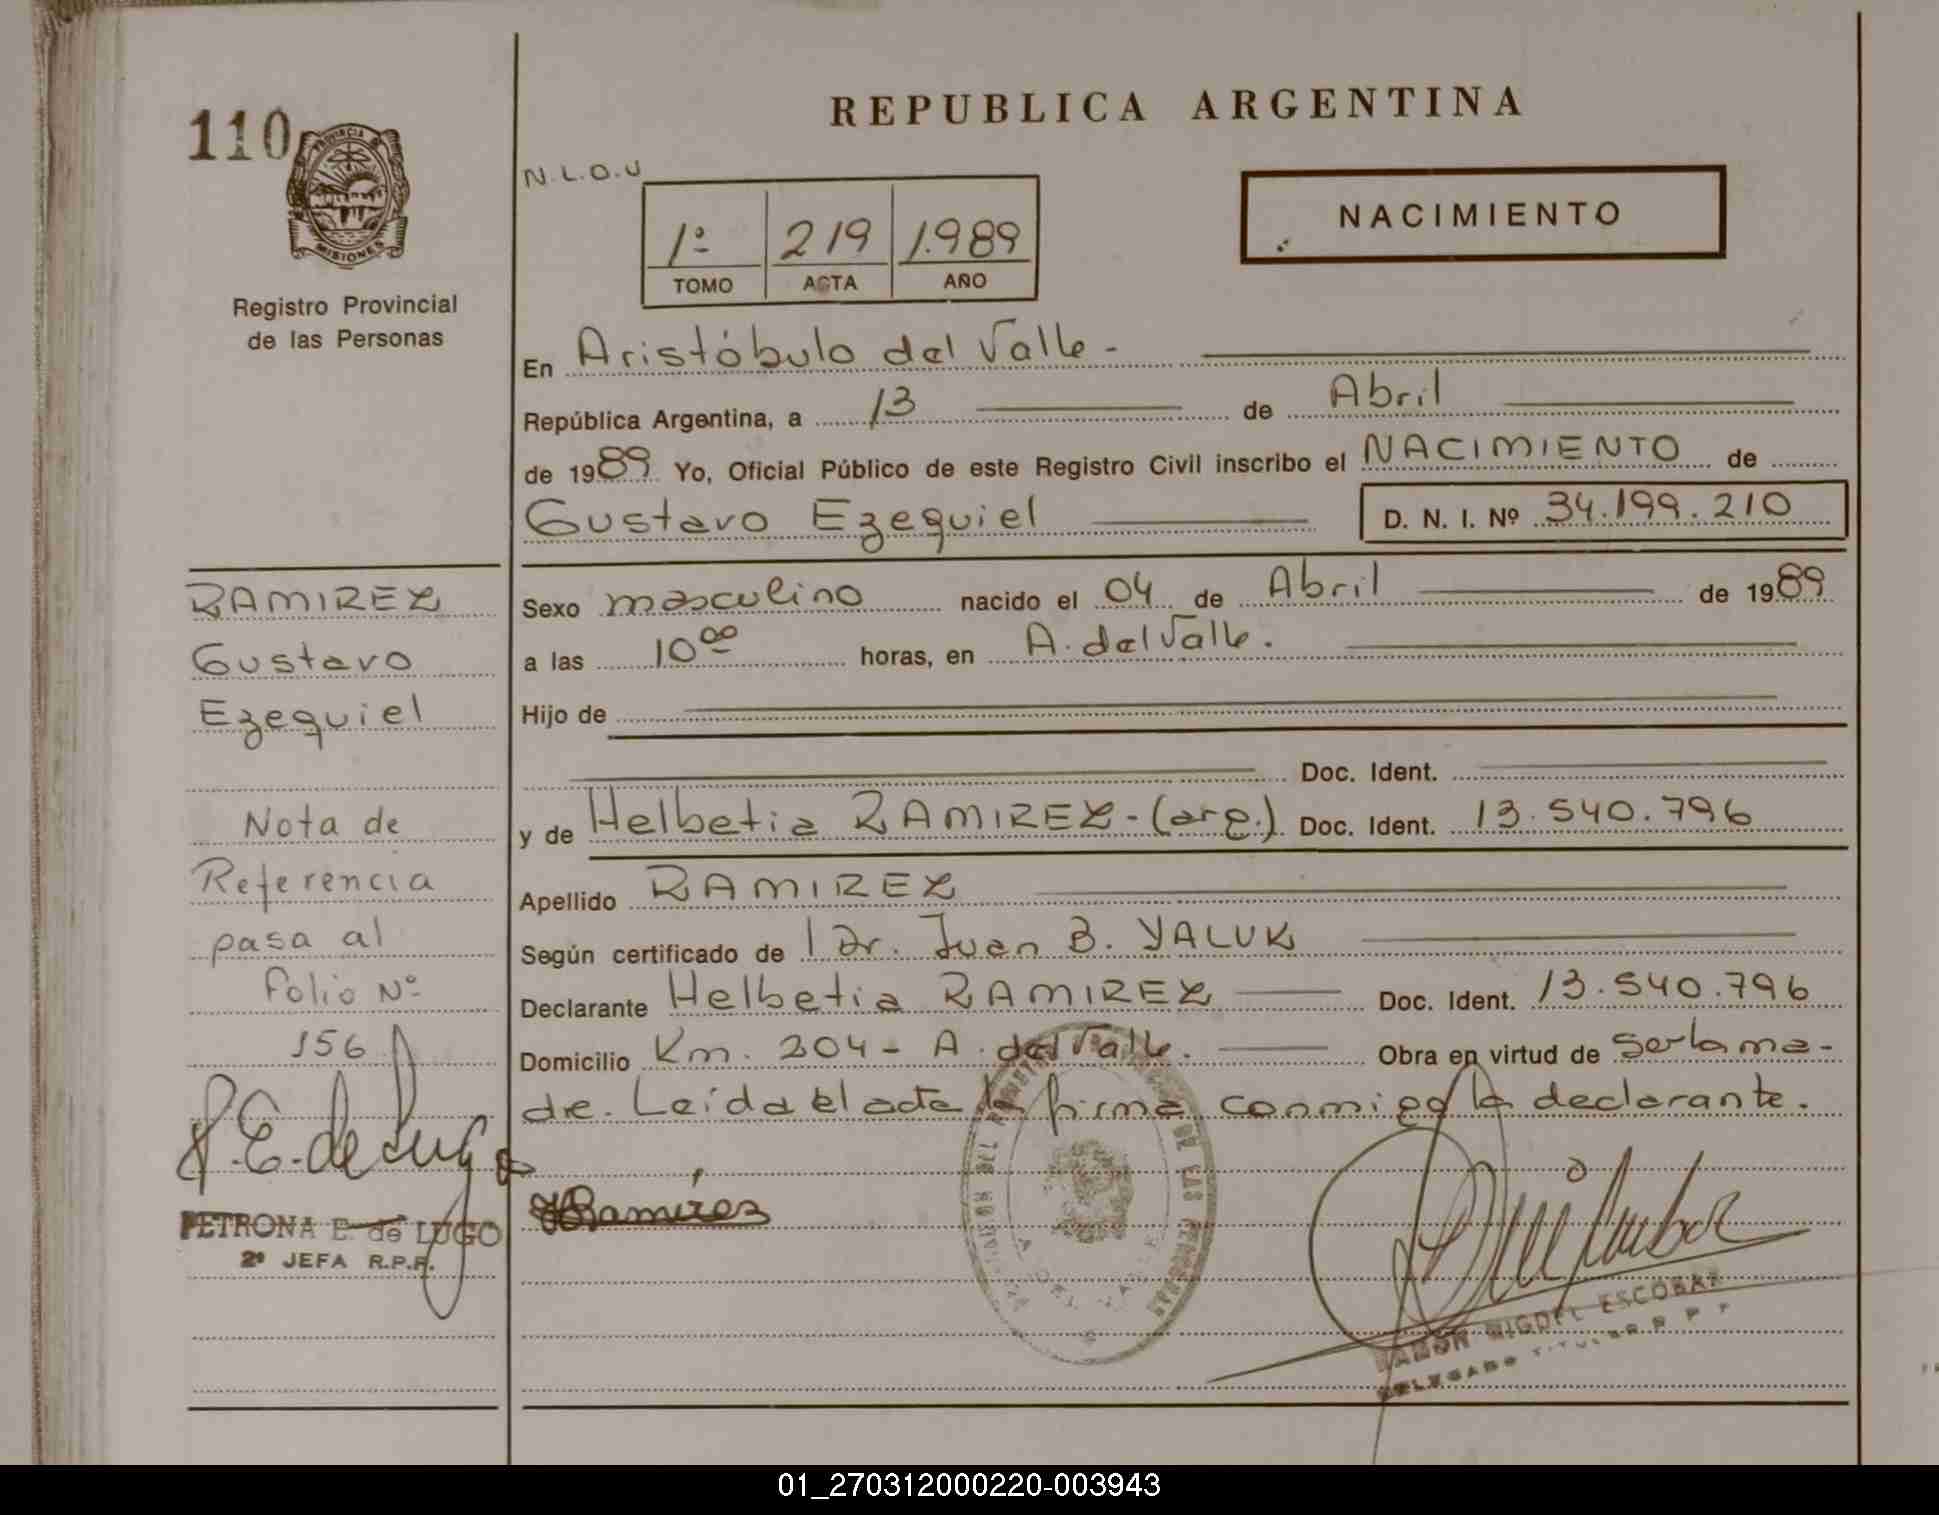 110
PROVINCIA
MISIONES
Registro Provincial
de las Personas
REPUBLICA ARGENTINA
N.L.O.U
1º 219 1.989
TOMO ACTA AÑO
NACIMIENTO
En Aristóbulo del Valle -
República Argentina, a 13 de Abril
de 1989 Yo, Oficial Público de este Registro Civil inscribo el NACIMIENTO de
Gustavo Ezequiel D. N. I. Nº 34.199.210
Sexo masculino nacido el 04 de Abril de 1989
a las 10 00 horas, en A. del Valle.
Hijo de
Doc. Ident.
y de Helbetia RAMIREZ - (arg.) Doc. Ident. 13.540.796
Apellido RAMIREZ
Según certificado de Dr. Juan B. YALUK
Declarante Helbetia RAMIREZ Doc. Ident. 13.540.796
Domicilio Km. 204 - A. del Valle. Obra en virtud de ser la ma-
dre. Leída el acta la firma conmigo la declarante.
HRamírez
RAMON MIGUEL ESCOBAR
DELEGADO TITULAR R P P
RAMIREZ
Gustavo
Ezequiel
Nota de
Referencia
pasa al
folio Nº
156
P.E. de Lugo
PETRONA E. de LUGO
2º JEFA R.P.P.
DE LAS PERSONAS
A. DEL VALLE
01_270312000220-003943